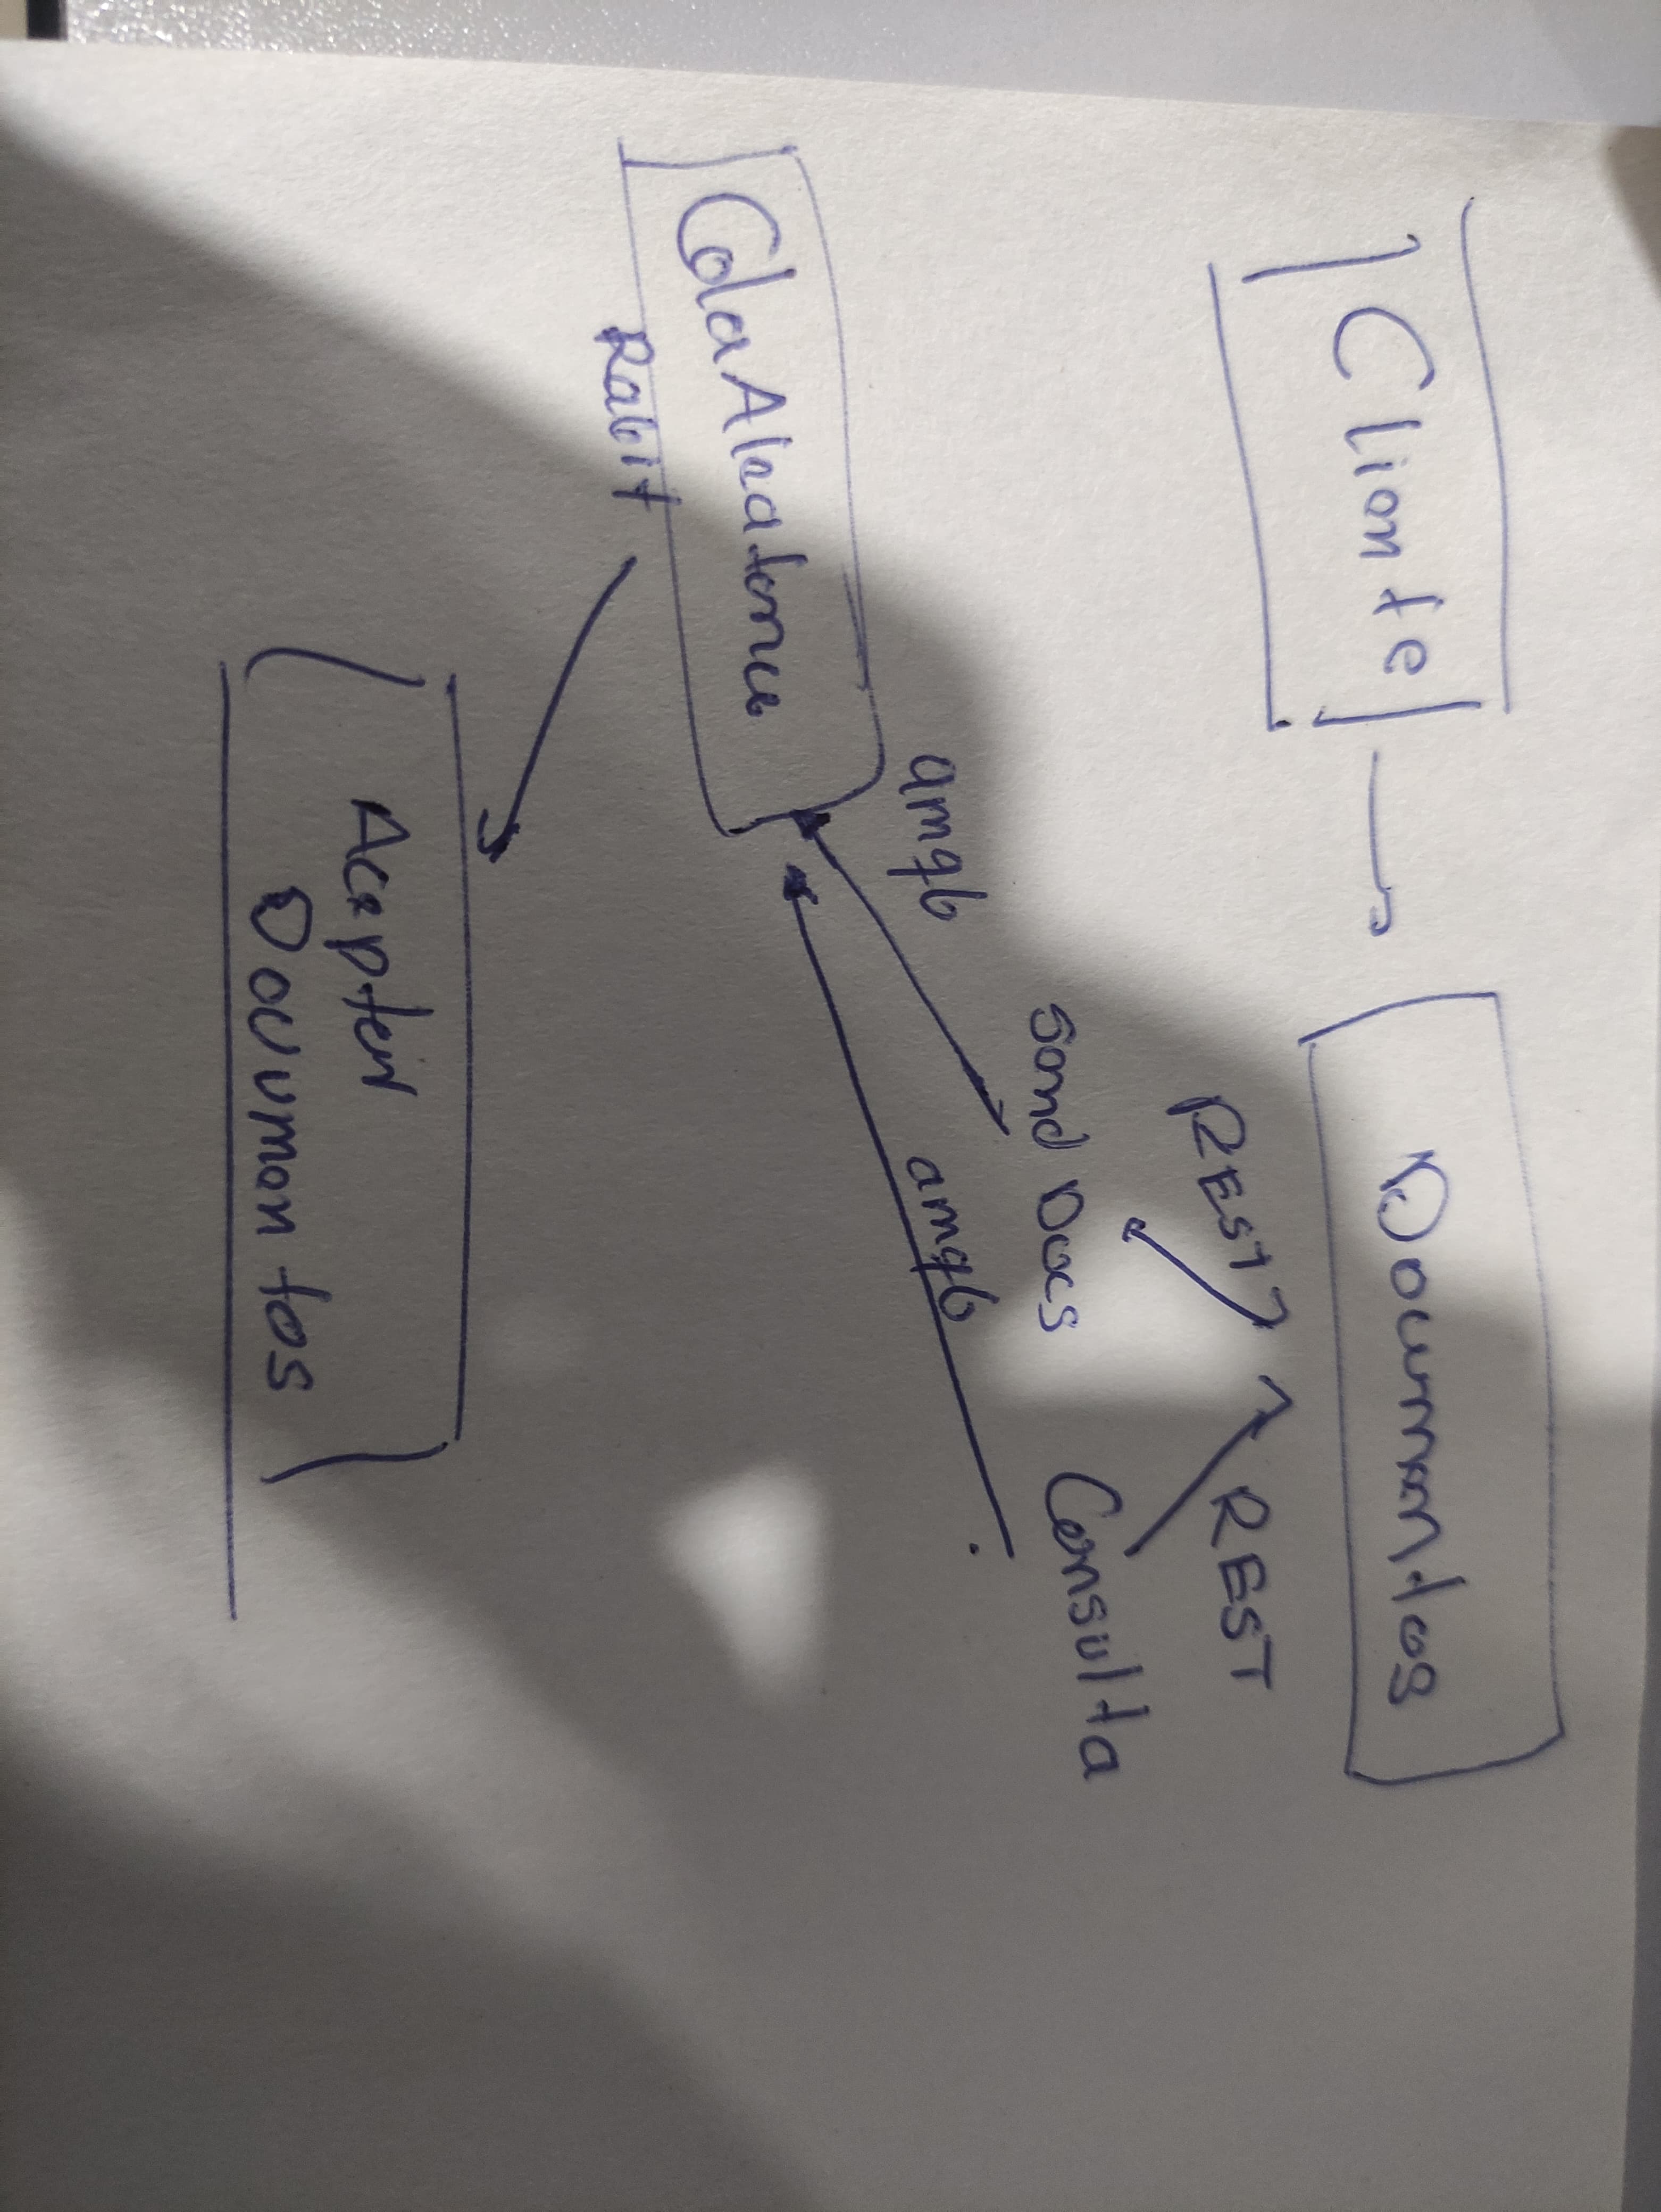 Cliente
Documentos
REST
REST
Send Docs
Consulta
amqb
amqb
Cola Aleatoria
Rabit
Aceptar
Documentos